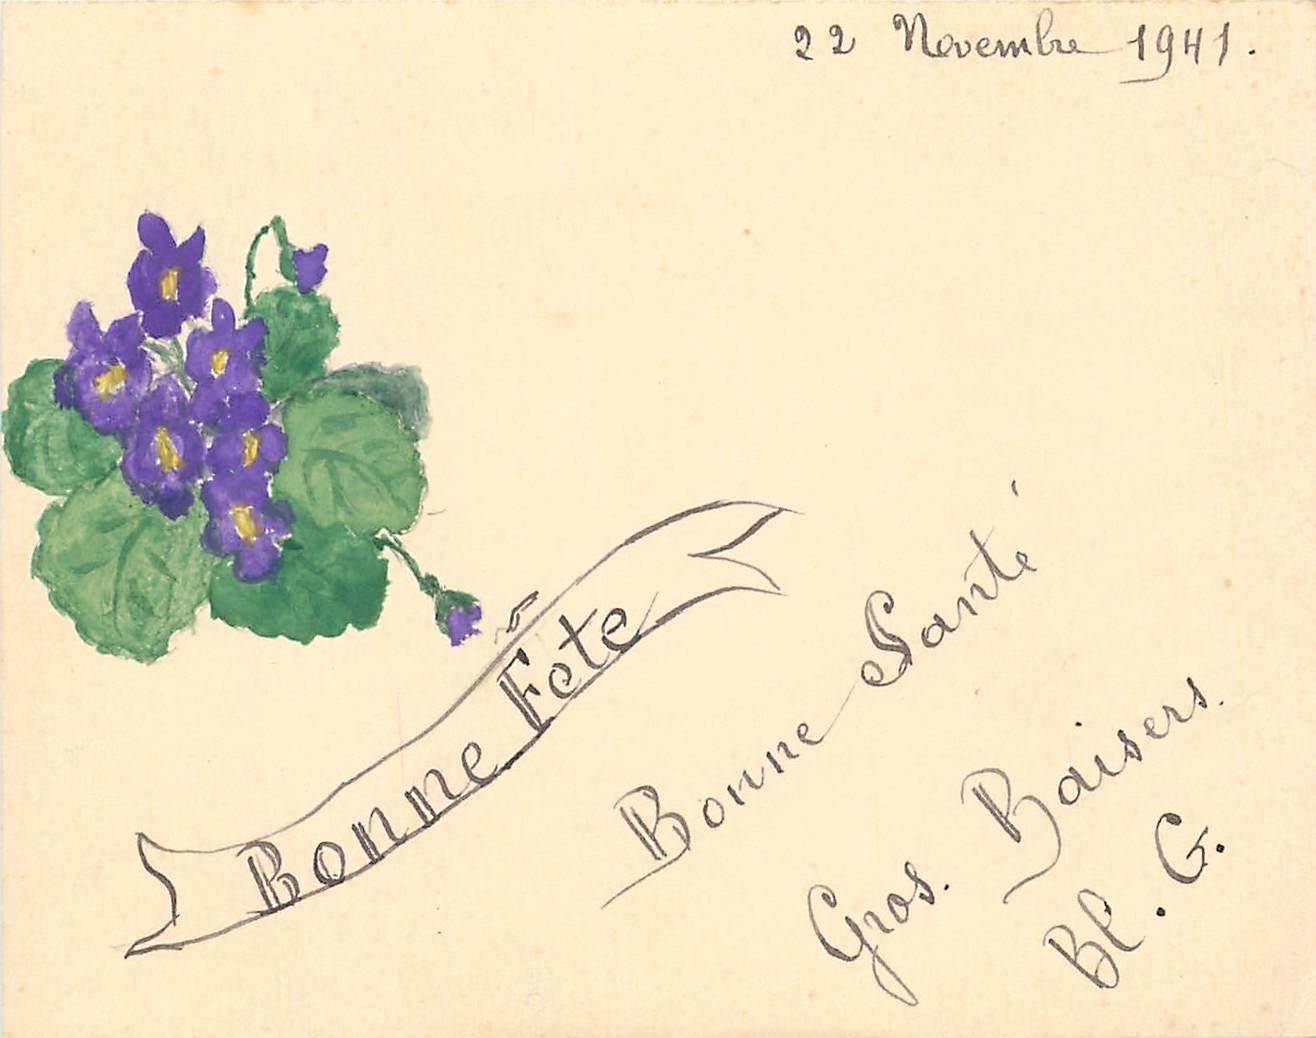 22 Novembre 1941.
Bonne Fête
Bonne Santé
Gros. Baisers.
Bl. G.